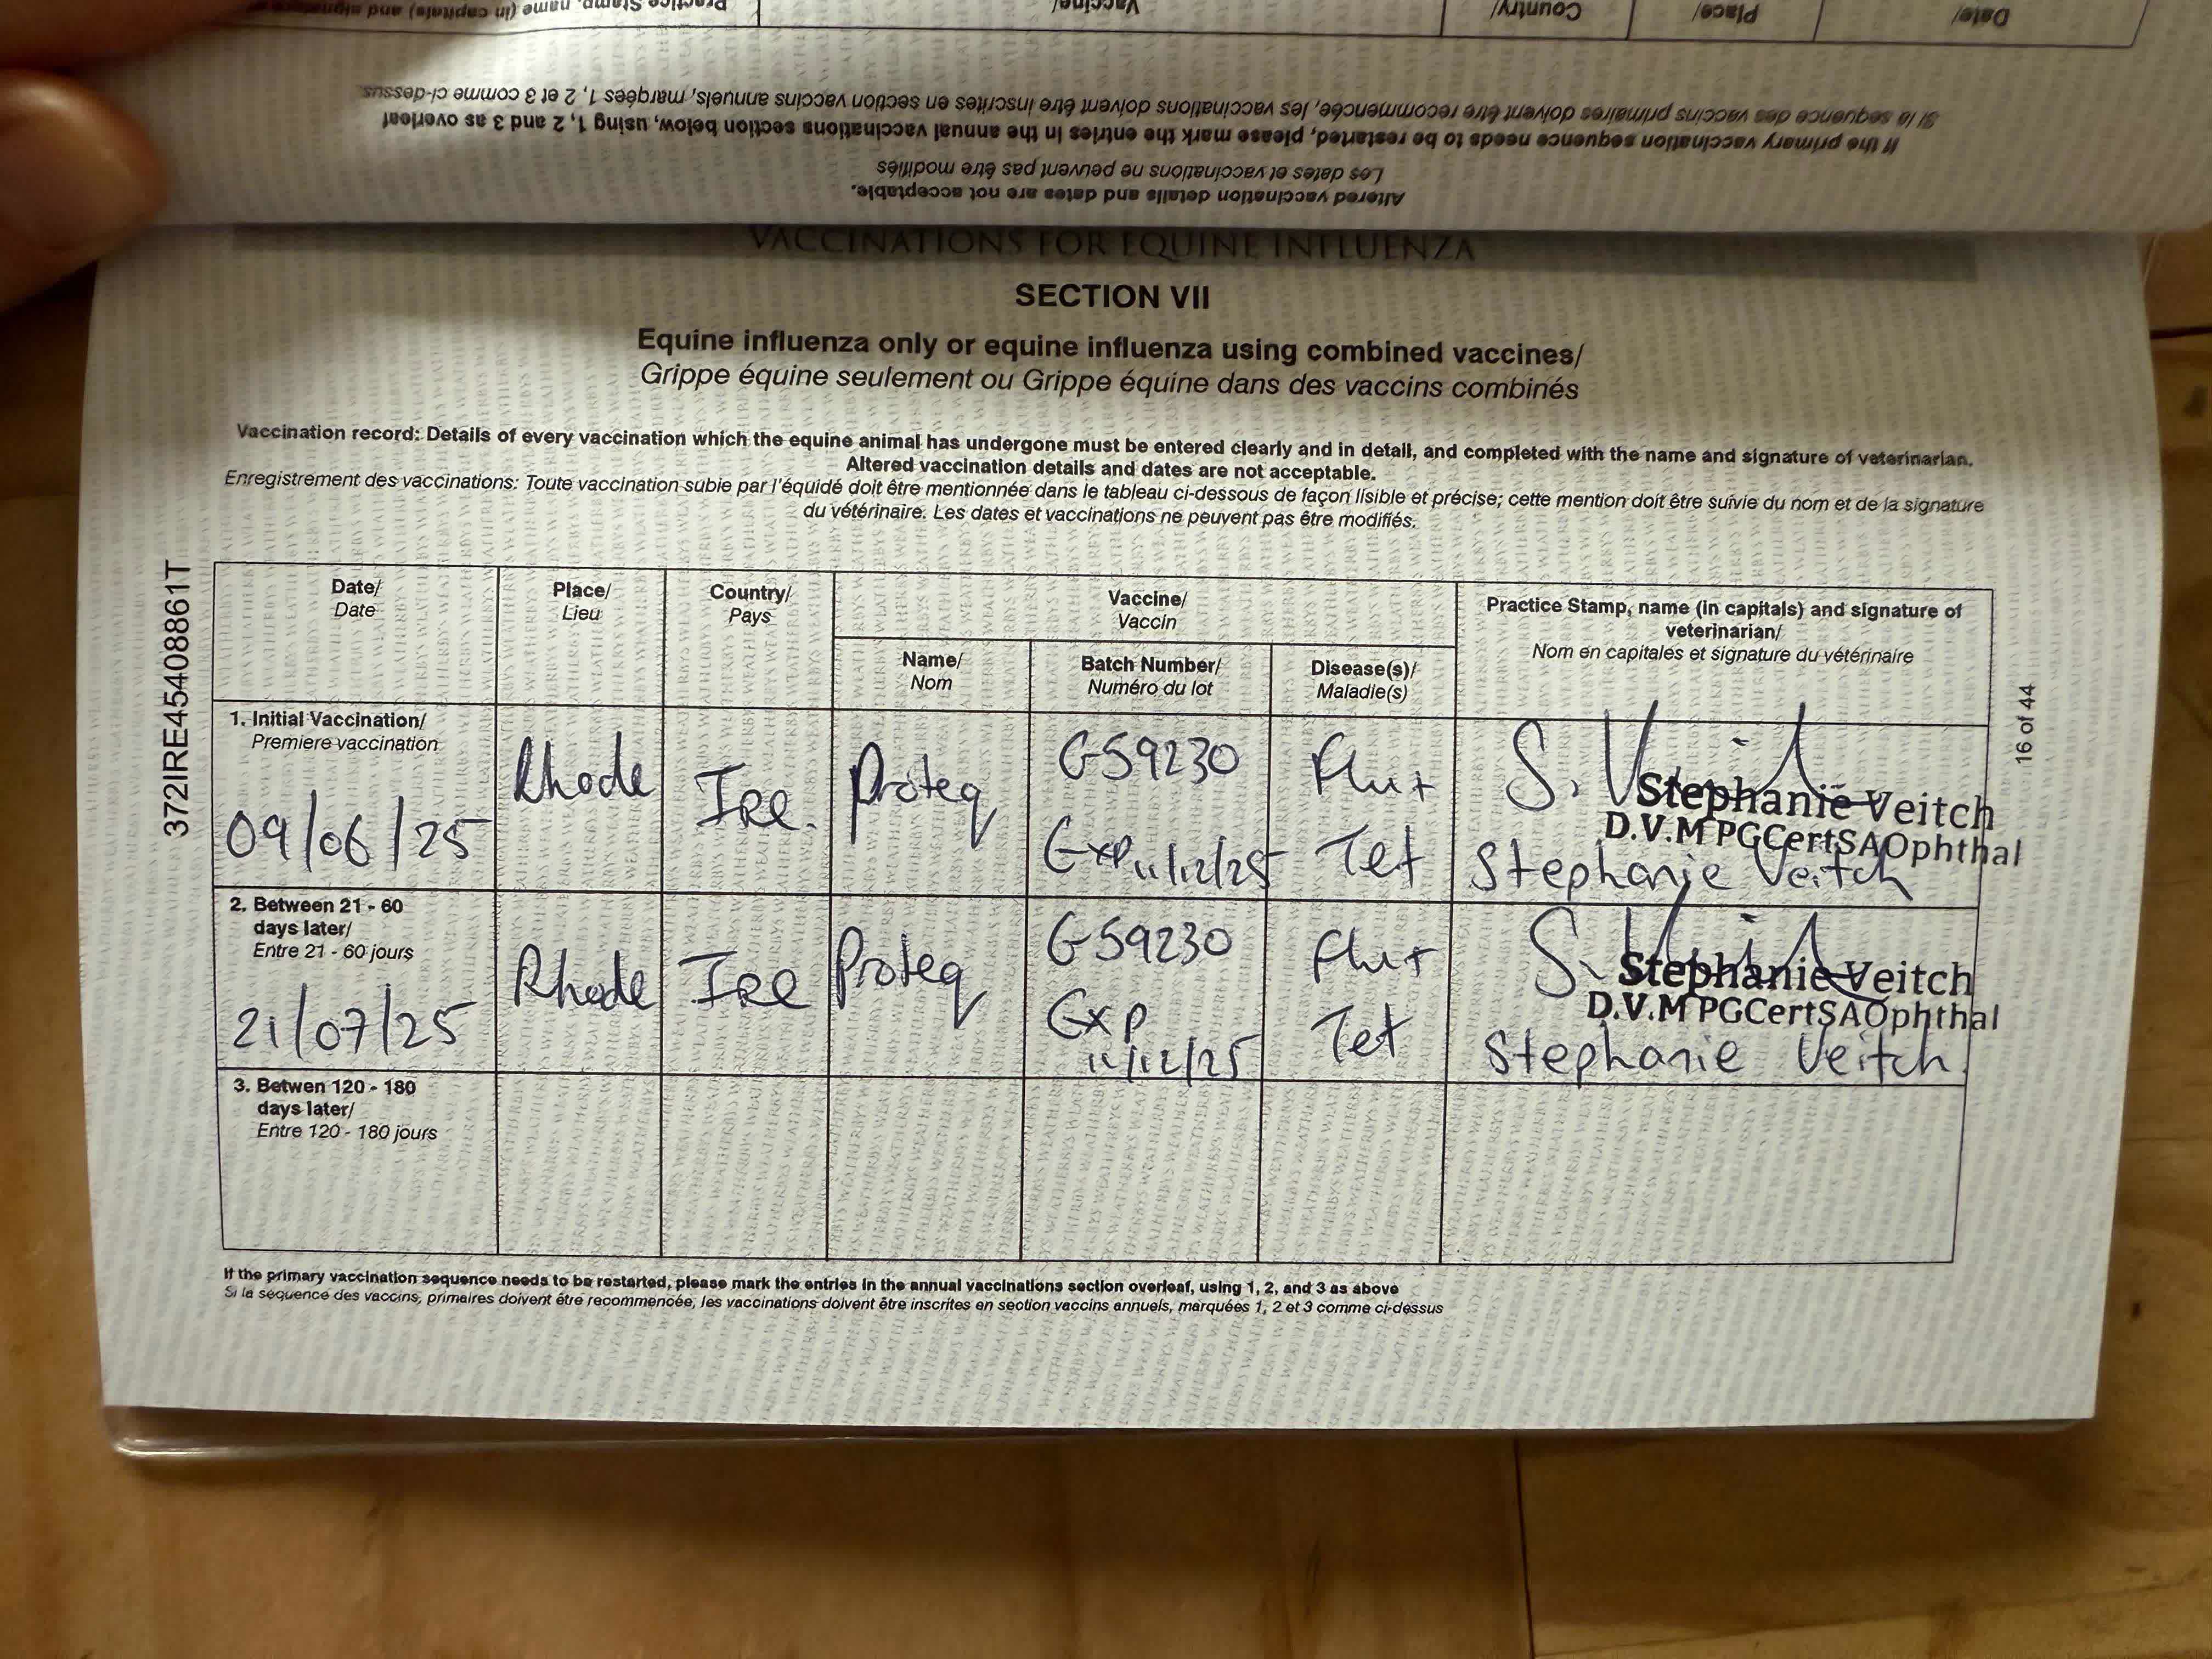 Practice Stamp, name (in capitals) and signature
Vaccine/
Country/
Place/
Date/
Si la sequence des vaccins primaires doivent être recommencée, les vaccinations doivent être inscrites en section vaccins annuels, marqées 1, 2 et 3 comme ci-dessus
If the primary vaccination sequence needs to be restarted, please mark the entries in the annual vaccinations section below, using 1, 2 and 3 as overleaf
Les dates et vaccinations ne peuvent pas être modifiés
Altered vaccination details and dates are not acceptable.
VACCINATIONS FOR EQUINE INFLUENZA
SECTION VII
Equine influenza only or equine influenza using combined vaccines/
Grippe équine seulement ou Grippe équine dans des vaccins combinés
Vaccination record: Details of every vaccination which the equine animal has undergone must be entered clearly and in detail, and completed with the name and signature of veterinarian.
Altered vaccination details and dates are not acceptable.
Enregistrement des vaccinations: Toute vaccination subie par l'équidé doit être mentionnée dans le tableau ci-dessous de façon lisible et précise; cette mention doit être suivie du nom et de la signature
du vétérinaire. Les dates et vaccinations ne peuvent pas être modifiés.
372IRE45408861T
16 of 44
Date/
Date
Place/
Lieu
Country/
Pays
Vaccine/
Vaccin
Name/
Nom
Batch Number/
Numéro du lot
Disease(s)/
Maladie(s)
Practice Stamp, name (in capitals) and signature of
veterinarian/
Nom en capitales et signature du vétérinaire
1. Initial Vaccination/
Premiere vaccination
09/06/25
Rhode
Ire.
Proteq
G59230
Exp 11/12/25
Flu +
Tet
S. Veitch
Stephanie Veitch
D.V.M PGCertSAOphthal
Stephanie Veitch
2. Between 21 - 60
days later/
Entre 21 - 60 jours
21/07/25
Rhode
Ire
Proteq
G59230
Exp
11/12/25
Flu +
Tet
S. Veitch
Stephanie Veitch
D.V.M PGCertSAOphthal
Stephanie Veitch.
3. Betwen 120 - 180
days later/
Entre 120 - 180 jours
If the primary vaccination sequence needs to be restarted, please mark the entries in the annual vaccinations section overleaf, using 1, 2, and 3 as above
Si la séquence des vaccins, primaires doivent être recommencée, les vaccinations doivent être inscrites en section vaccins annuels, marquées 1, 2 et 3 comme ci-dessus